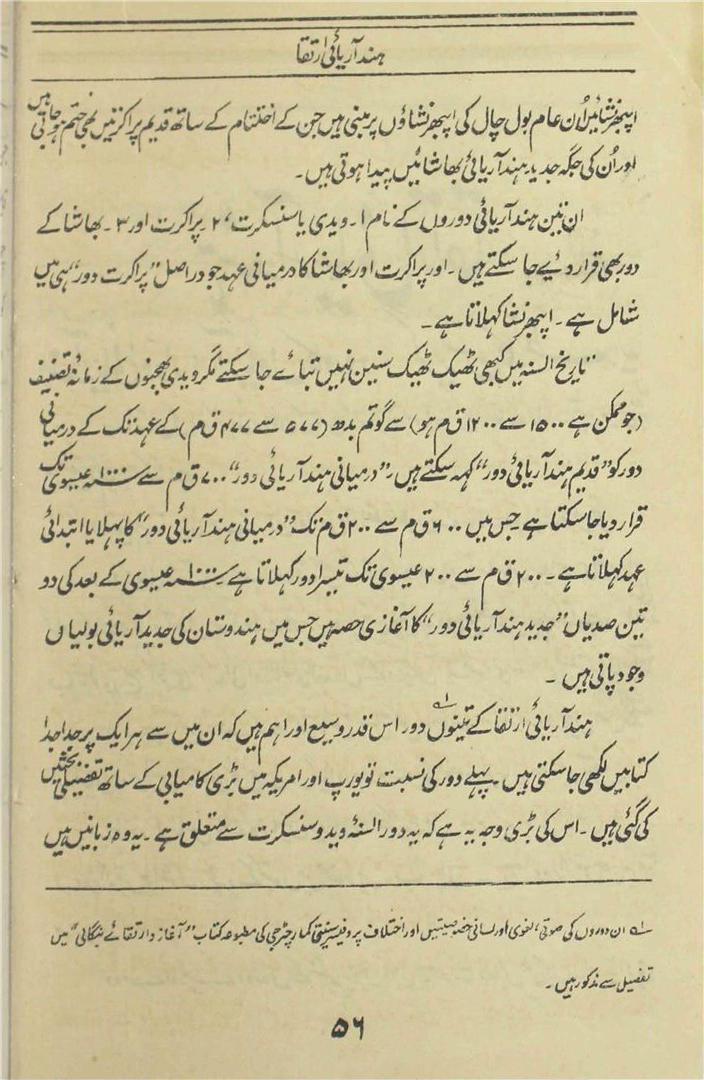 ہند آریائی ارتقا
اپبھرنشائیں اُن عام بول چال کی اپبھرنشاؤں پر مبنی ہیں جن کے اختتام کے ساتھ قدیم پراکرتیں بھی ختم ہو جاتی ہیں
اور اُن کی جگہ جدید ہند آریائی بھاشائیں پیدا ہوتی ہیں ۔
ان تین ہند آریائی دوروں کے نام ۱۔ ویدی یا سنسکرت ، ۲۔ پراکرت اور ۳۔ بھاشا کے
دور بھی قرار دئیے جا سکتے ہیں ۔ اور پراکرت اور بھاشا کا درمیانی عہد جو دراصل ”پراکرت دور“ ہی میں
شامل ہے ۔ اپبھرنشا کہلاتا ہے ۔
تاریخ السنہ میں کبھی ٹھیک ٹھیک سنین نہیں بتائے جا سکتے مگر ویدی بھجنوں کے زمانۂ تصنیف
(جو ممکن ہے ۱۵۰۰ سے ۱۲۰۰ ق م ہو) سے گوتم بدھ (۵۷۷ سے ۴۷۷ ق م) کے عہد تک کے درمیانی
دور کو ”قدیم ہند آریائی دور“ کہہ سکتے ہیں ۔ ”درمیانی ہند آریائی دور“ ۷۰۰ ق م سے ۱۰۰۰ء عیسوی تک
قرار دیا جا سکتا ہے جس میں ۶۰۰ ق م سے ۲۰۰ ق م تک ”درمیانی ہند آریائی دور“ کا پہلا یا ابتدائی
عہد کہلاتا ہے ۔ ۲۰۰ ق م سے ۲۰۰ عیسوی تک تیسرا دور کہلاتا ہے ۱۰۰۰ء عیسوی کے بعد کی دو
تین صدیاں ”جدید ہند آریائی دور“ کا آغازی حصہ ہیں جس میں ہندوستان کی جدید آریائی بولیاں
وجود پاتی ہیں ۔
ہند آریائی ارتقا کے تینوں ۱؎ دور اس قدر وسیع اور اہم ہیں کہ ان میں سے ہر ایک پر جدا جدا
کتابیں لکھی جا سکتی ہیں ۔ پہلے دور کی نسبت تو یورپ اور امریکہ میں بڑی کامیابی کے ساتھ تفصیلی بحثیں
کی گئی ہیں ۔ اس کی بڑی وجہ یہ ہے کہ یہ دور السنۂ وید و سنسکرت سے متعلق ہے ۔ یہ وہ زبانیں ہیں
۱؎ ان دوروں کی صوتی ، لغوی اور لسانی خصوصیتیں اور اختلاف پروفیسر سنیتی کمار چٹرجی کی مطبوعہ کتاب ”آغاز و ارتقائے بنگالی“ میں
تفصیل سے مذکور ہیں ۔
۵۶